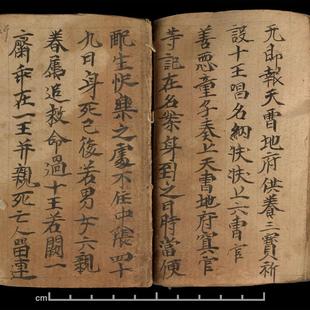 无即報天曹地府供養三寳祈
設十王唱名納狀狀上六曹官
善惡童子奏上天曹地府冥官
等記在名案身到之日時當便
配生快樂之處不住中陰四十
九日身死已後若男女六親
眷屬追救命過十王若闕一
齋乖在一王并親死亡人畱連
cm